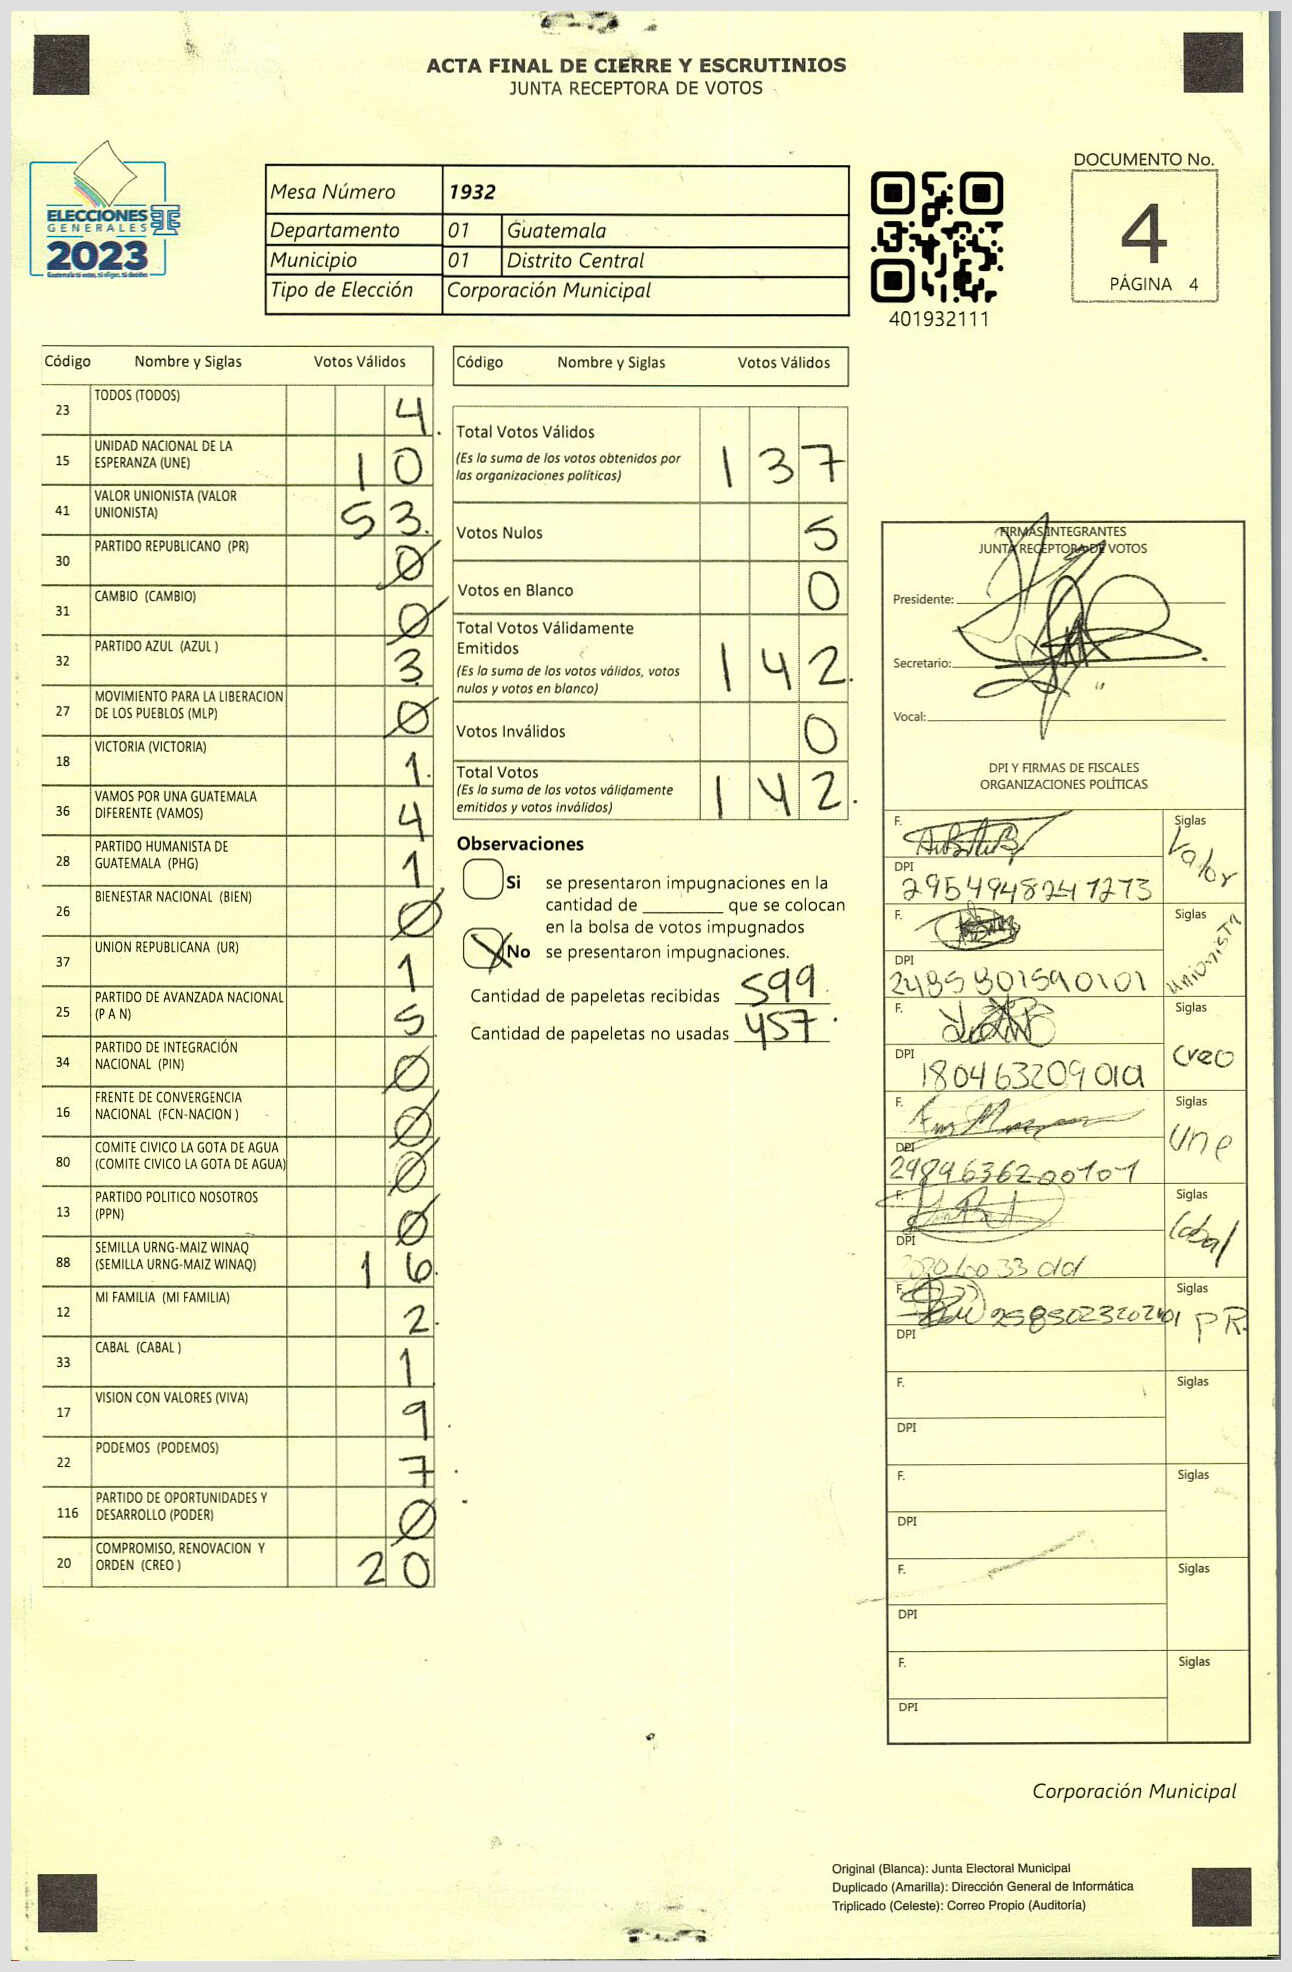 ACTA FINAL DE CIERRE Y ESCRUTINIOS
JUNTA RECEPTORA DE VOTOS
ELECCIONES
GENERALES
2023
Mesa Número 1932
Departamento 01 Guatemala
Municipio 01 Distrito Central
Tipo de Elección Corporación Municipal
401932111
DOCUMENTO No.
4
PÁGINA 4
Código Nombre y Siglas Votos Válidos
23 TODOS (TODOS) 4
15 UNIDAD NACIONAL DE LA
ESPERANZA (UNE) 10
41 VALOR UNIONISTA (VALOR
UNIONISTA) 53
30 PARTIDO REPUBLICANO (PR) 0
31 CAMBIO (CAMBIO) 0
32 PARTIDO AZUL (AZUL ) 3
27 MOVIMIENTO PARA LA LIBERACION
DE LOS PUEBLOS (MLP) 0
18 VICTORIA (VICTORIA) 1
36 VAMOS POR UNA GUATEMALA
DIFERENTE (VAMOS) 4
28 PARTIDO HUMANISTA DE
GUATEMALA (PHG) 1
26 BIENESTAR NACIONAL (BIEN) 0
37 UNION REPUBLICANA (UR) 1
25 PARTIDO DE AVANZADA NACIONAL
(P A N) 5
34 PARTIDO DE INTEGRACIÓN
NACIONAL (PIN) 0
16 FRENTE DE CONVERGENCIA
NACIONAL (FCN-NACION ) 0
80 COMITE CIVICO LA GOTA DE AGUA
(COMITE CIVICO LA GOTA DE AGUA) 0
13 PARTIDO POLITICO NOSOTROS
(PPN) 0
88 SEMILLA URNG-MAIZ WINAQ
(SEMILLA URNG-MAIZ WINAQ) 16
12 MI FAMILIA (MI FAMILIA) 2
33 CABAL (CABAL ) 1
17 VISION CON VALORES (VIVA) 9
22 PODEMOS (PODEMOS) 7
116 PARTIDO DE OPORTUNIDADES Y
DESARROLLO (PODER) 0
20 COMPROMISO, RENOVACION Y
ORDEN (CREO ) 20
Código Nombre y Siglas Votos Válidos
Total Votos Válidos
(Es la suma de los votos obtenidos por
las organizaciones políticas) 137
Votos Nulos 5
Votos en Blanco 0
Total Votos Válidamente
Emitidos
(Es la suma de los votos válidos, votos
nulos y votos en blanco) 142
Votos Inválidos 0
Total Votos
(Es la suma de los votos válidamente
emitidos y votos inválidos) 142
Observaciones
Si se presentaron impugnaciones en la
cantidad de ________ que se colocan
en la bolsa de votos impugnados
No se presentaron impugnaciones.
Cantidad de papeletas recibidas 599
Cantidad de papeletas no usadas 457
FIRMAS INTEGRANTES
JUNTA RECEPTORA DE VOTOS
Presidente:
Secretario:
Vocal:
DPI Y FIRMAS DE FISCALES
ORGANIZACIONES POLÍTICAS
F. Siglas Valor
DPI 2954948247273
F. Siglas Unionista
DPI
F. Siglas Creo
DPI
F. Siglas Une
DPI
F. Siglas Cabal
DPI
F. Siglas PR
DPI
F. Siglas
DPI
F. Siglas
DPI
F. Siglas
DPI
F. Siglas
DPI
Corporación Municipal
Original (Blanca): Junta Electoral Municipal
Duplicado (Amarilla): Dirección General de Informática
Triplicado (Celeste): Correo Propio (Auditoría)